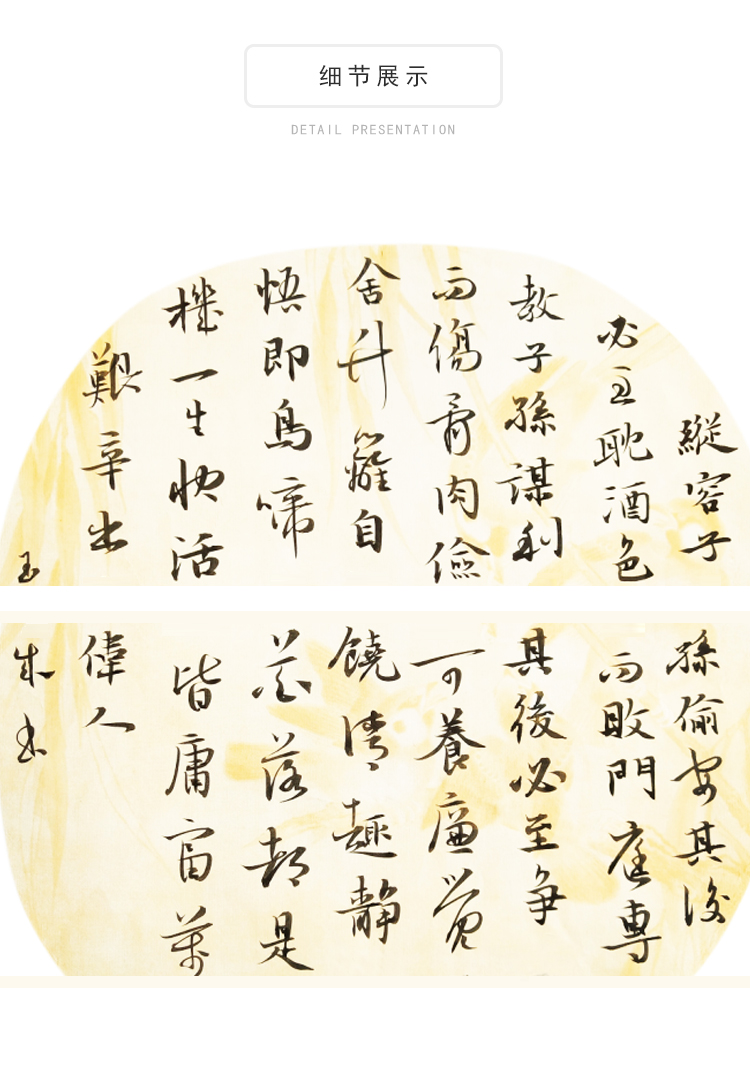 细节展示
DETAIL PRESENTATION
縱容子
必至耽酒色
教子孫謀利
而傷骨肉儉
舍竹籬自
悟即鳥啼
機一生快活
艱辛出
玉
孫偷安其後
而敗門庭專
其後必至爭
可養廉覺
饒清趣靜
花落都是
皆庸富萬
偉人
成書